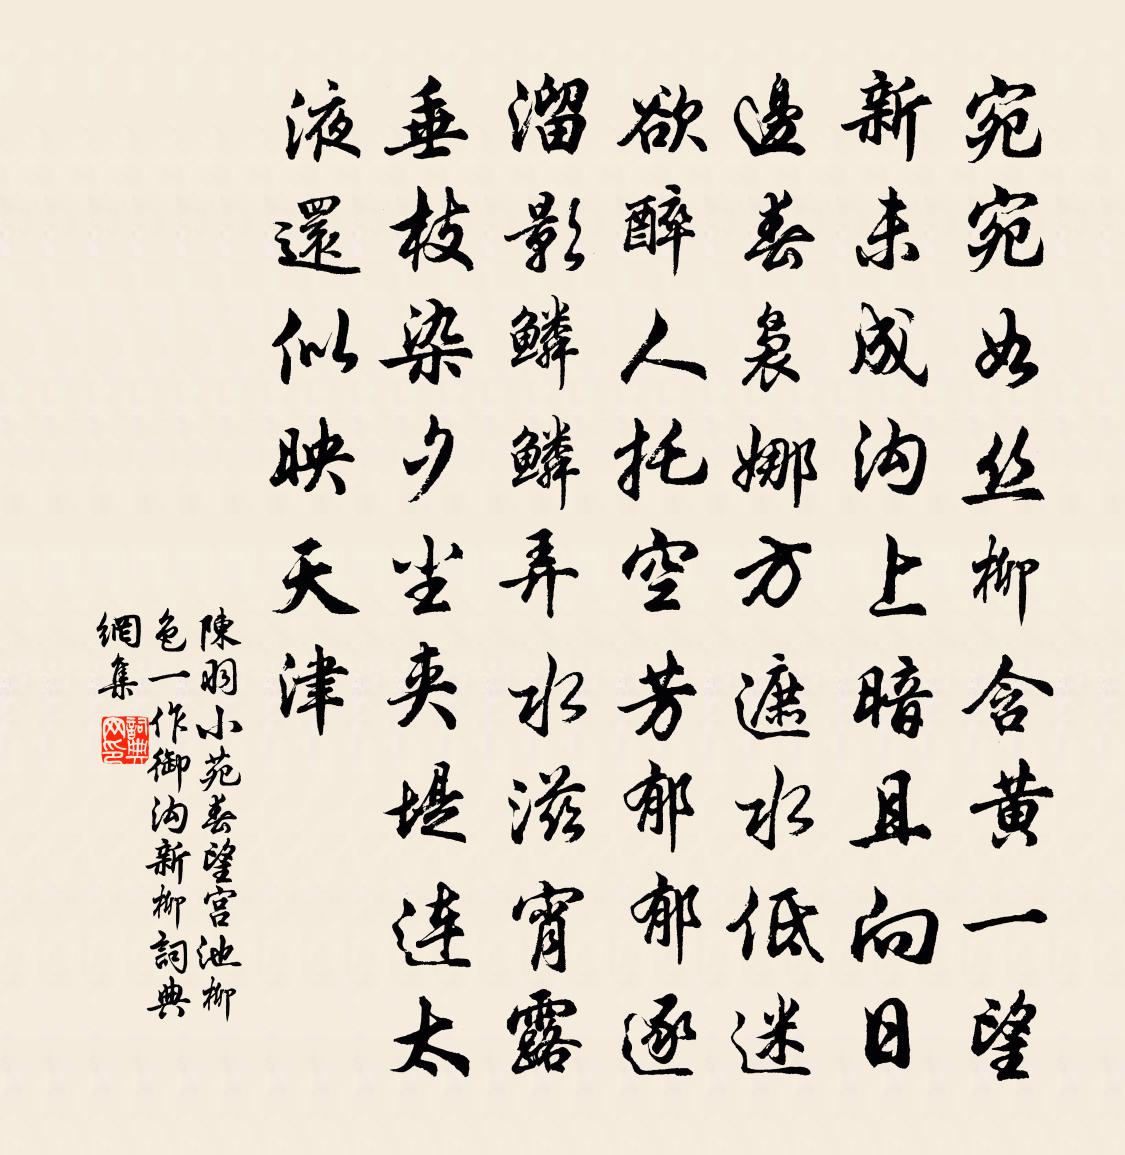 宛宛如丝柳含黄一望
新未成沟上暗且向日
邊春裊娜方遮水低迷
欲醉人托空芳郁郁逐
溜影鳞鳞弄水滋宵露
垂枝染夕尘夹堤连太
液還似映天津
陳羽小苑春望宫池柳
色一作御沟新柳詞典
網集
詞典网印